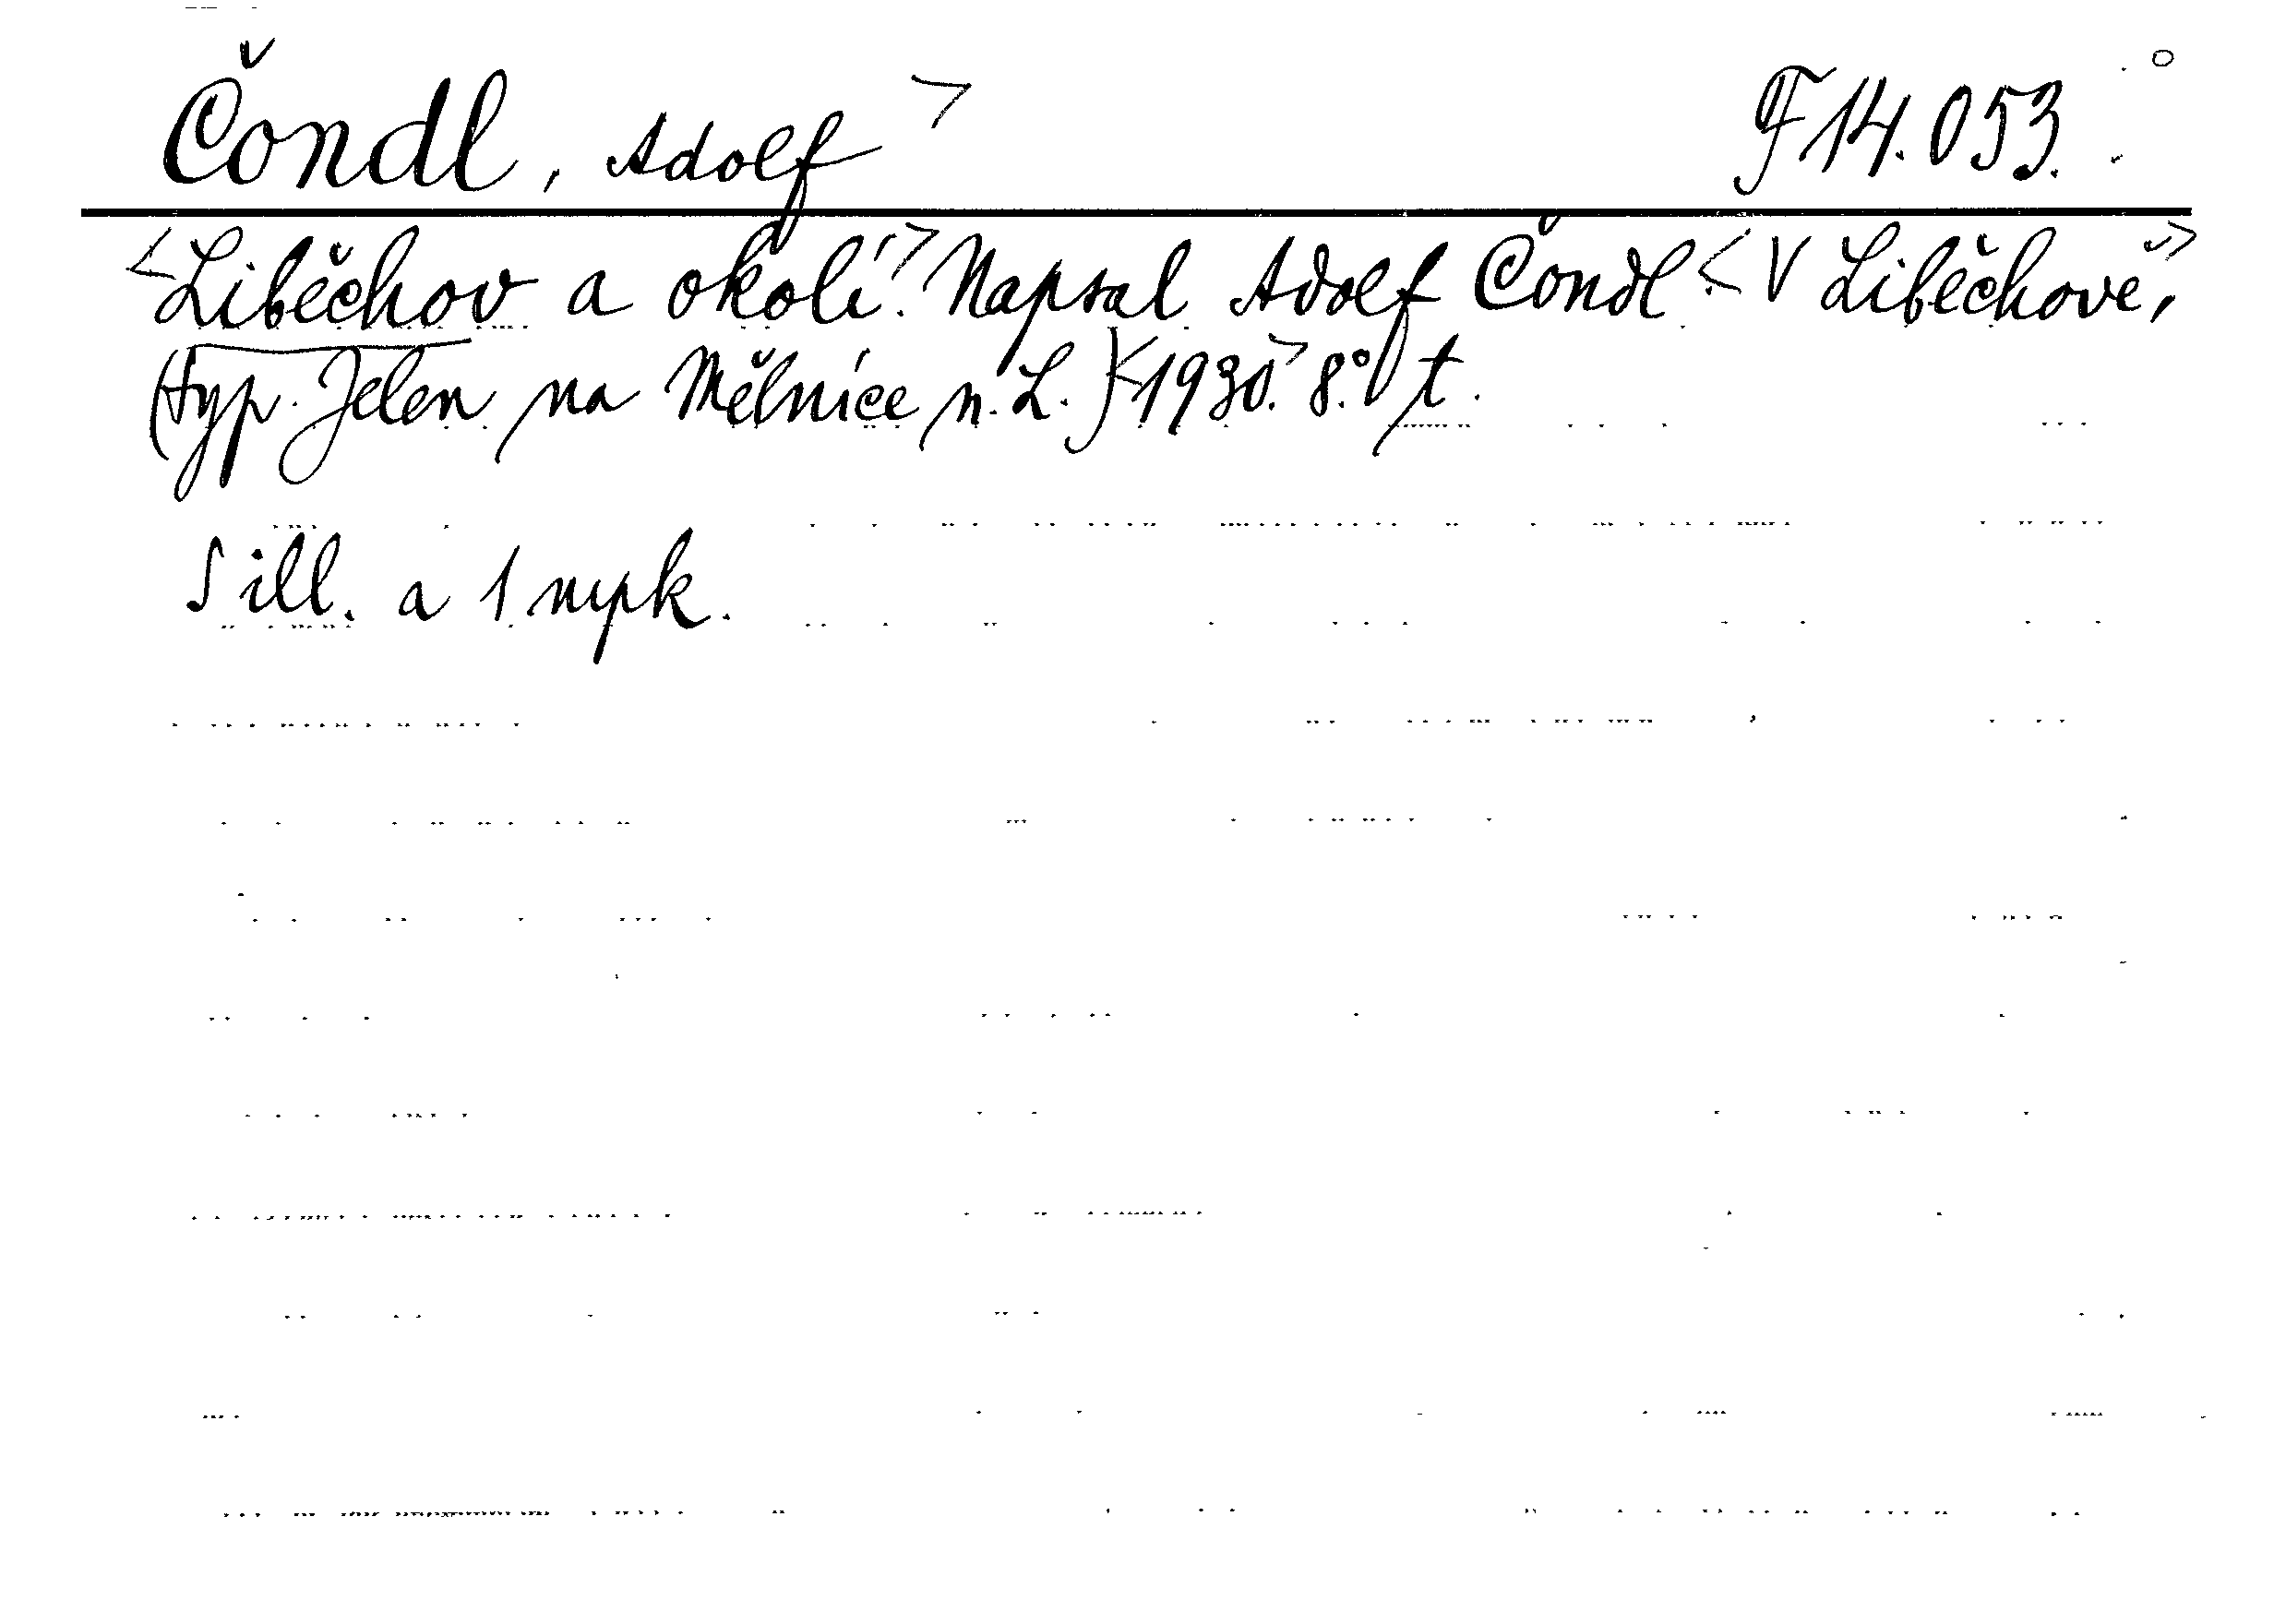 Čondl, Adolf> F 14.053.
<Liběchov a okolí.> Napsal Adolf Čondl. <V Liběchově,>
(typ. Jelen na Mělníce n. L.) <1930.> 8.° t.
S ill. a 1 mpk.